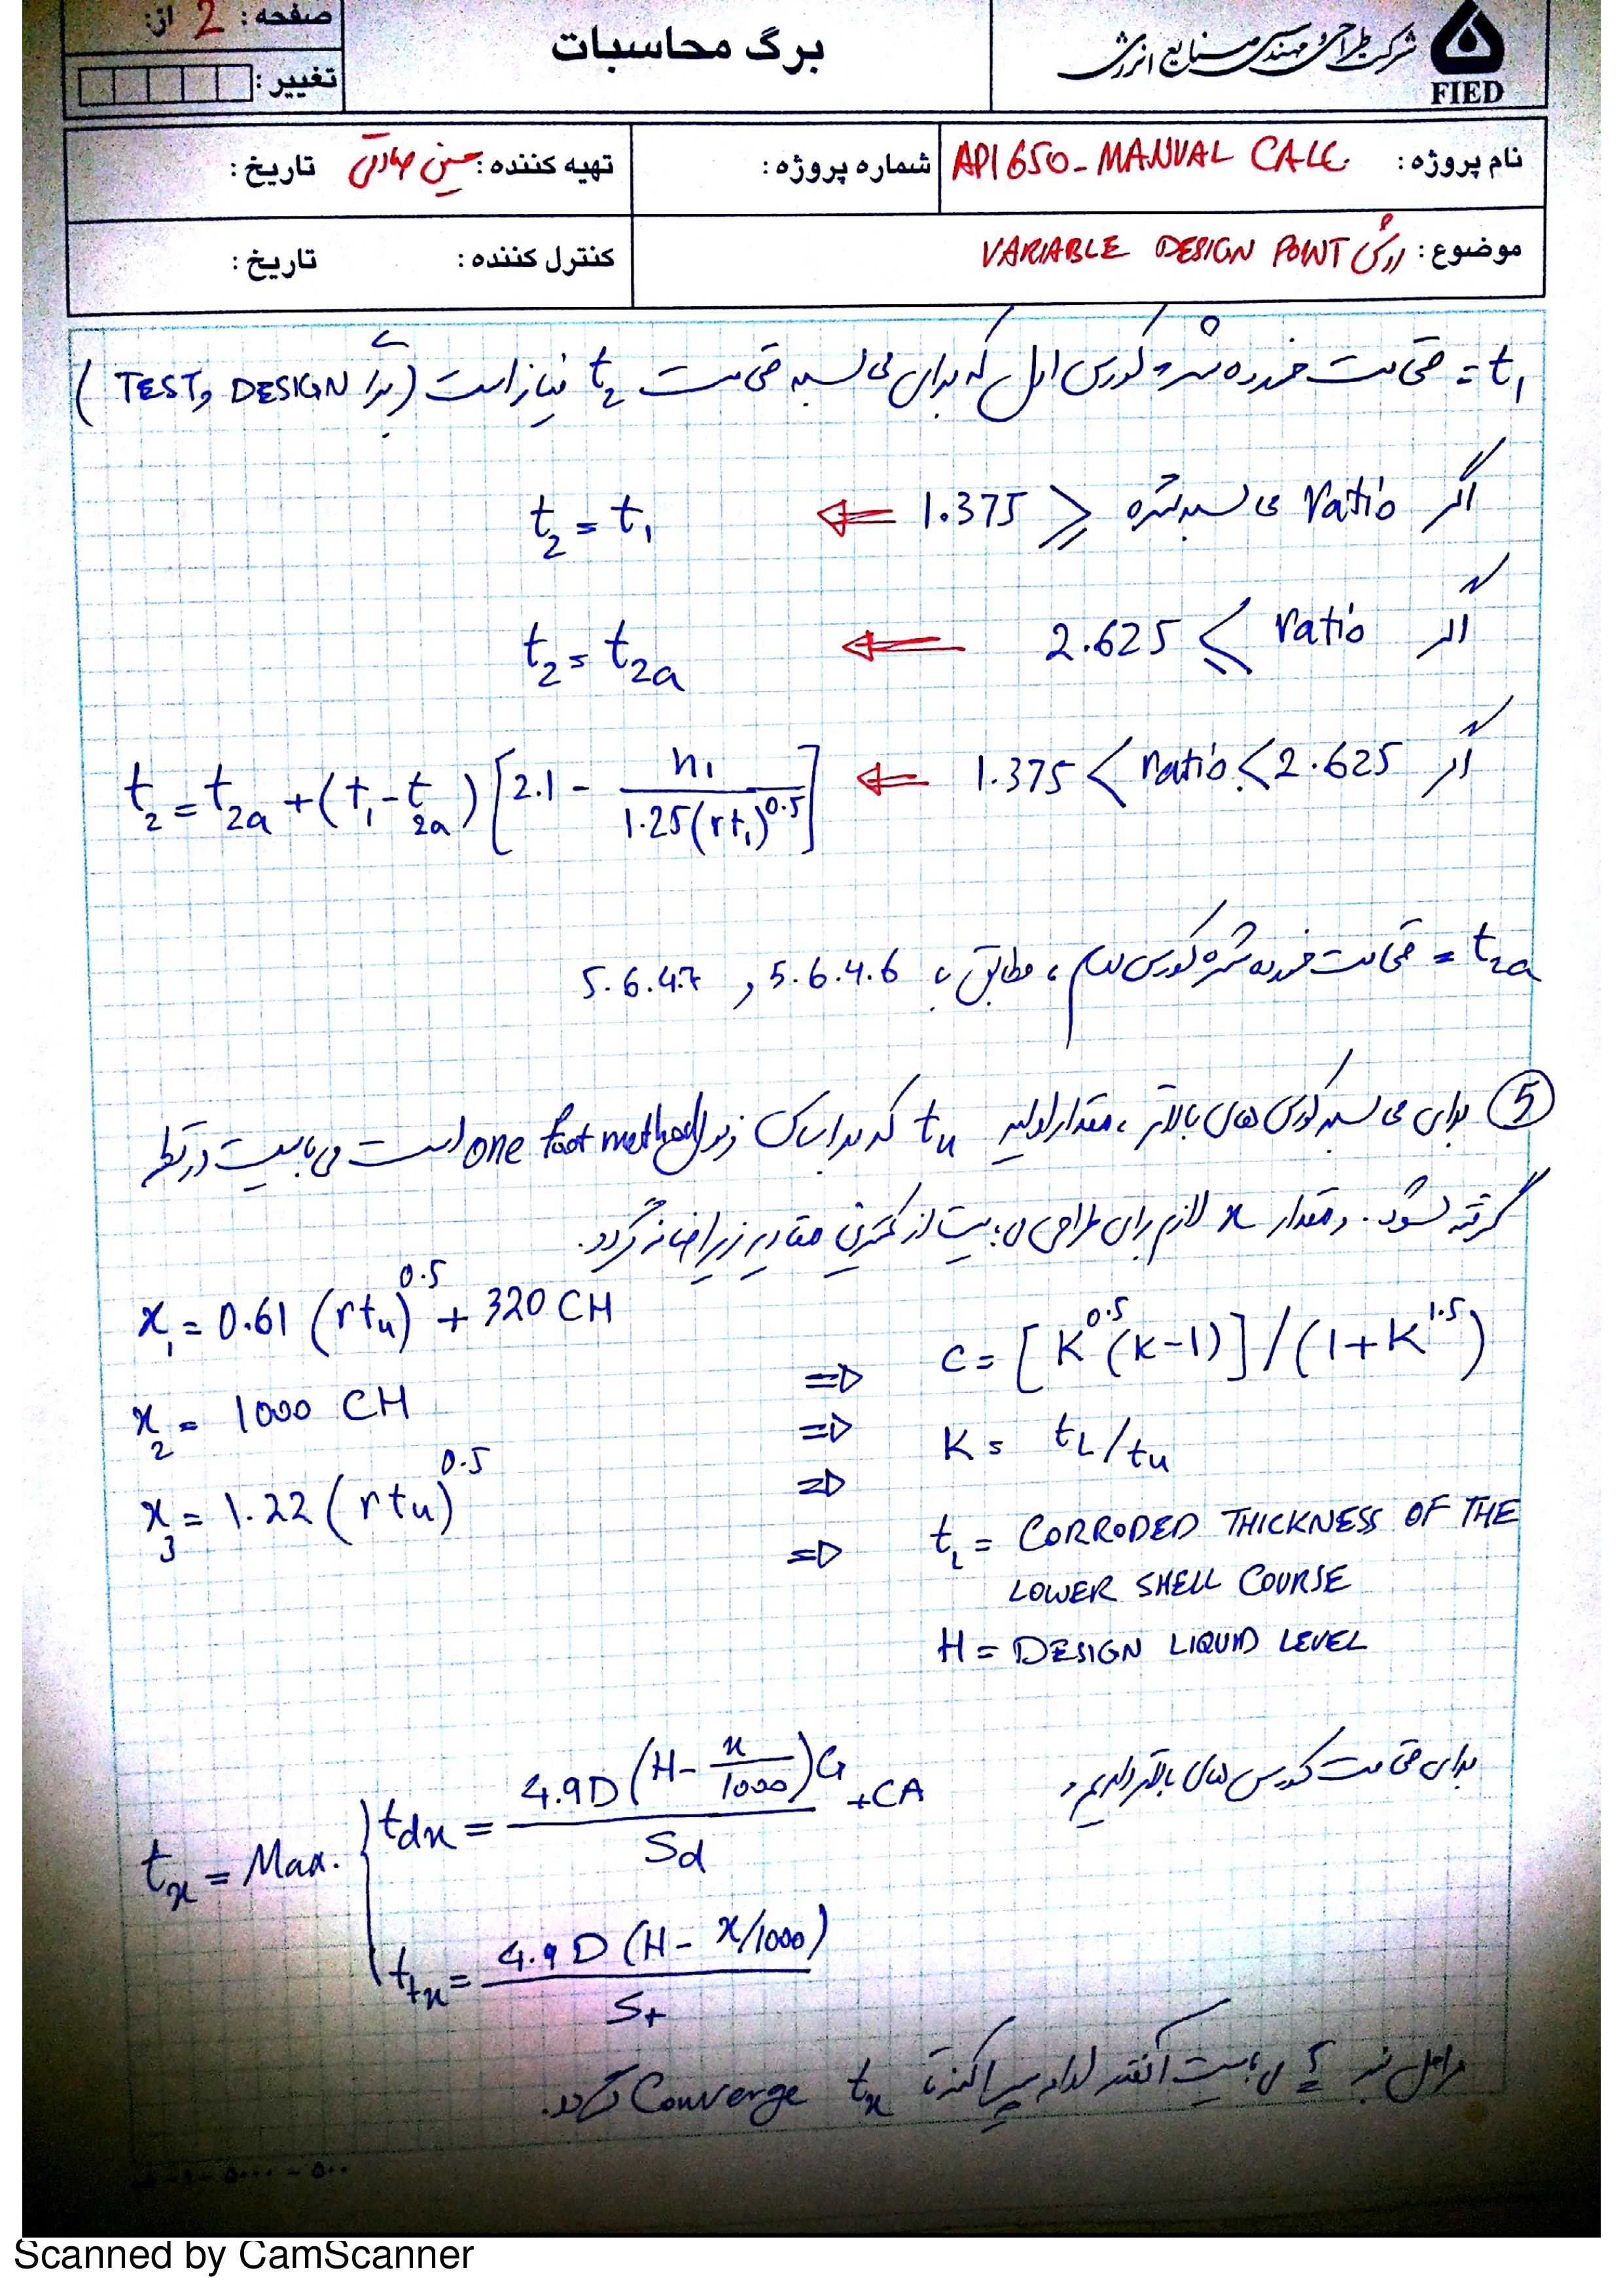 صفحه : 2 از:
تغییر :
برگ محاسبات
شرکت طراحی مهندسی صنایع انرژی
FIED
نام پروژه : API 650 - MANUAL CALC.
شماره پروژه :
تهیه کننده : حسین صادقی تاریخ :
موضوع : روش VARIABLE DESIGN POINT
کنترل کننده : تاریخ :
t₁ = ضخامت خورده شده کورس اول که برای محاسبه ضخامت t₂ نیاز است (برای DESIGN و TEST)
اگر ratio محاسبه شده ≤ 1.375 ⇐ t₂ = t₁
اگر ratio ≥ 2.625 ⇐ t₂ = t₂ₐ
اگر 1.375 < ratio < 2.625 ⇐ t₂ = t₂ₐ + (t₁ - t₂ₐ) [2.1 - h₁ / 1.25(rt₁)^0.5]
t₂ₐ = ضخامت خورده شده کورس دوم، مطابق با 5.6.4.6 و 5.6.4.7
⑤ برای محاسبه کورس های بالاتر، مقدار اولیه tu که بر اساس one foot method است می بایست در نظر
گرفته شود. و مقدار x لازم برای طراحی می بایست از کمترین مقادیر زیر اضافه گردد.
x₁ = 0.61 (rtu)^0.5 + 320 CH
x₂ = 1000 CH
x₃ = 1.22 (rtu)^0.5
⇒ C = [K^0.5 (K-1)] / (1+K^1.5)
⇒ K = tL/tu
⇒
⇒ tL = CORRODED THICKNESS OF THE
LOWER SHELL COURSE
H = DESIGN LIQUID LEVEL
برای ضخامت کورس های بالاتر داریم :
tx = Max. { tdx = 4.9D (H - x/1000) G / Sd + CA
ttx = 4.9 D (H - x/1000) / St
مراحل بند 5 می بایست آنقدر ادامه پیدا کند تا tx Converge گردد.
۵۰۰ - ۵۰۰۰ - ۱ -
Scanned by CamScanner